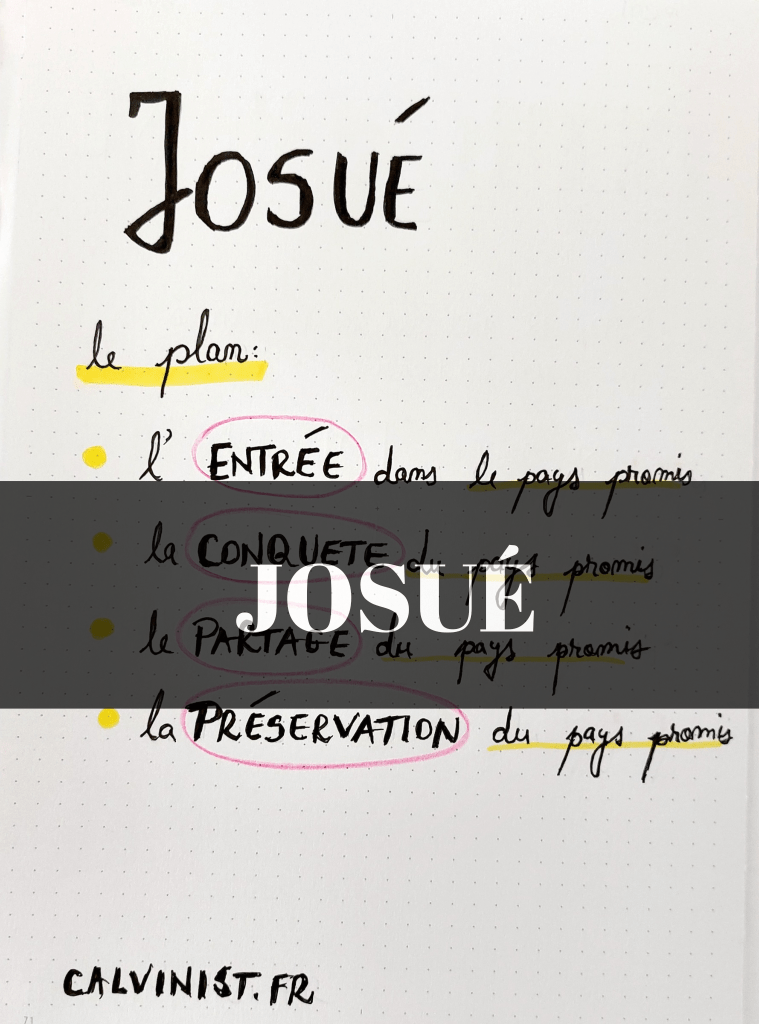 JOSUÉ
le plan:
l' ENTRÉE dans le pays promis
la CONQUETE du pays promis
JOSUÉ
le PARTAGE du pays promis
la PRÉSERVATION du pays promis
CALVINIST.FR
71